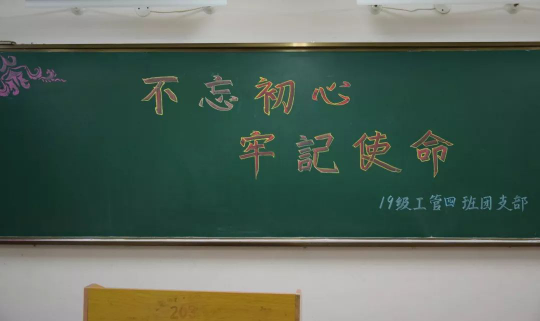 不忘初心
牢記使命
19级工管四班团支部